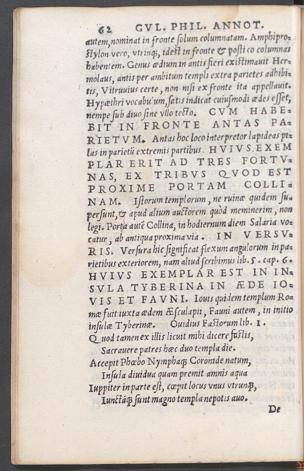 62 GVL. PHIL. ANNOT.
autem, nominat in fronte solum columnatam. Amphipro-
stylon vero, vtrinq;, idest in fronte & postico columnas
habentem. Genus ædium in antis fieri existimauit Her-
molaus, antis per ambitum templi extra parietes adhibi-
tis, Vitruuius certe, non nisi ex fronte ita appellauit.
Hypæthri vocabulum, satis indicat cuiusmodi ædes esset,
nempe sub diuo sine vllo tecto. CVM HABE-
BIT IN FRONTE ANTAS PA-
RIETVM. Antas hoc loco interpretor lapideas pi-
las in parietū extremis partibus. HVIVS EXEM
PLAR ERIT AD TRES FORTV-
NAS, EX TRIBVS QVOD EST
PROXIME PORTAM COLLI-
NAM. Istorum templorum, ne ruinæ quidem su-
persunt, & apud alium auctorem quòd meminerim, non
legi. Porta autē Collina, in hodiernum diem Salaria vo-
catur, ab antiqua proxima via. IN VERSV-
RIS. Versura hic significat flexum angulorum in pa-
rietibus exteriorem, nam aliud scribimus lib. 5. cap. 6.
HVIVS EXEMPLAR EST IN IN-
SVLA TYBERINA IN ÆDE IO-
VIS ET FAVNI. Iouis quidem templum Ro-
mæ fuit iuxta ædem Æsculapii, Fauni autem, in initio
insulæ Tyberinæ. Ouidius Fastorum lib. 1.
Quod tamen ex illis licuit mihi dicere fastis,
Sacrauere patres hæc duo templa die.
Accepit Phœbo Nymphaq; Coronide natum,
Insula diuidua quam premit amnis aqua
Iuppiter in parte est, cœpit locus vnus vtrunq;,
Iunctaq; sunt magno templa nepotis auo.
De